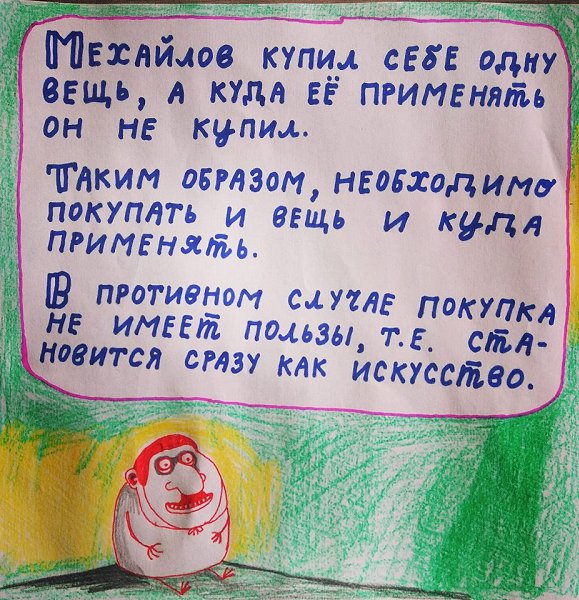 Мехайлов купил себе одну
вещь, а куда её применять
он не купил.
Таким образом, необходимо
покупать и вещь и куда
применять.
В противном случае покупка
не имеет пользы, т.е. ста-
новится сразу как искусство.